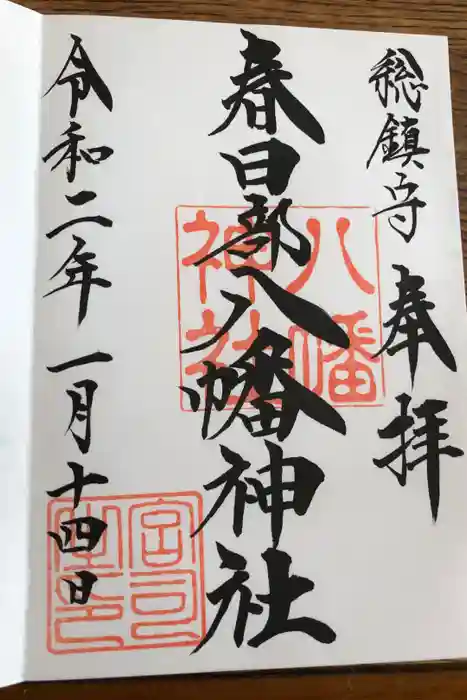 総鎮守 奉拝
春日部八幡神社
八幡
神社
令和二年 一月十四日
宮司
之印